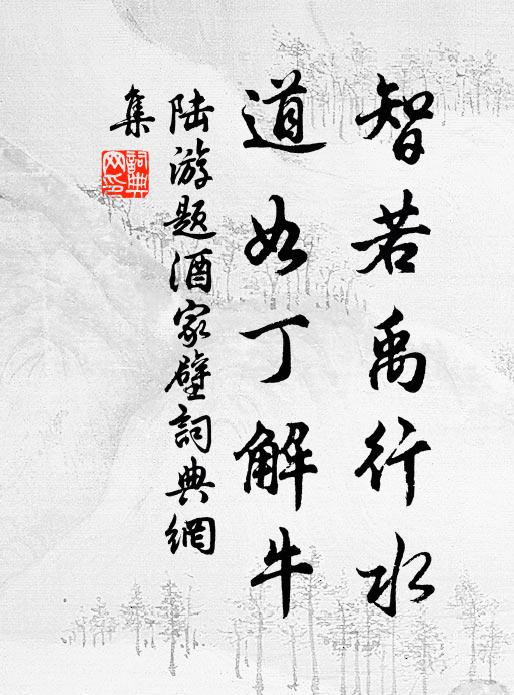 智若禹行水
道如丁解牛
陆游题酒家壁詞典網
集
詞典
网印